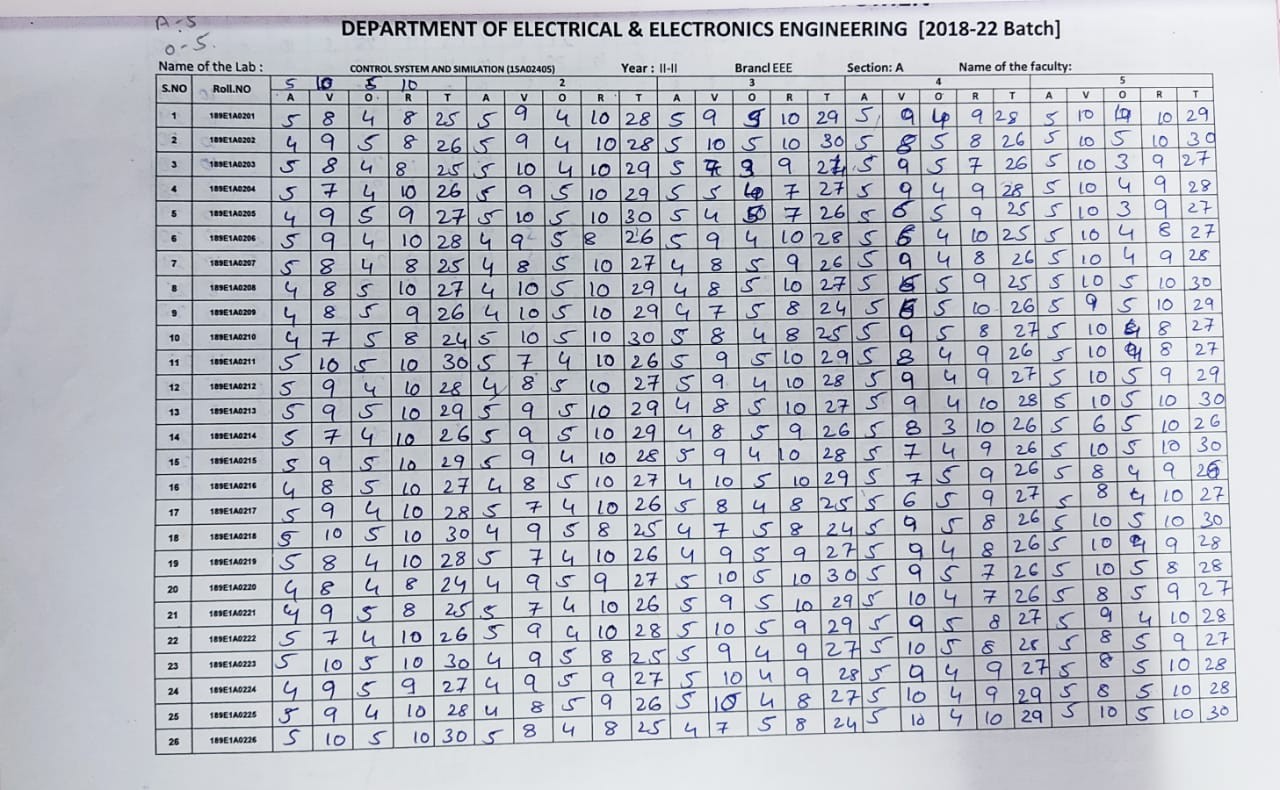 A-5
O-5.
DEPARTMENT OF ELECTRICAL & ELECTRONICS ENGINEERING [2018-22 Batch]
Name of the Lab : CONTROL SYSTEM AND SIMILATION (15A02405) Year : II-II Brancl EEE Section: A Name of the faculty:
S.NO Roll.NO 5 10 5 10 2 3 4 5
A V O R T A V O R T A V O R T A V O R T A V O R T
1 189E1A0201 5 8 4 8 25 5 9 4 10 28 5 9 5 10 29 5 9 4 9 28 5 10 4 10 29
2 189E1A0202 4 9 5 8 26 5 9 4 10 28 5 10 5 10 30 5 8 5 8 26 5 10 5 10 30
3 189E1A0203 5 8 4 8 25 5 10 4 10 29 5 7 3 9 24 5 9 5 7 26 5 10 3 9 27
4 189E1A0204 5 7 4 10 26 5 9 5 10 29 5 5 7 27 5 9 4 9 28 5 10 4 9 28
5 189E1A0205 4 9 5 9 27 5 10 5 10 30 5 4 7 26 5 6 5 9 25 5 10 3 9 27
6 189E1A0206 5 9 4 10 28 4 9 5 8 26 5 9 4 10 28 5 6 4 10 25 5 10 4 8 27
7 189E1A0207 5 8 4 8 25 4 8 5 10 27 4 8 5 9 26 5 9 4 8 26 5 10 4 9 28
8 189E1A0208 4 8 5 10 27 4 10 5 10 29 4 8 5 10 27 5 6 5 9 25 5 10 5 10 30
9 189E1A0209 4 8 5 9 26 4 10 5 10 29 4 7 5 8 24 5 6 5 10 26 5 9 5 10 29
10 189E1A0210 4 7 5 8 24 5 10 5 10 30 5 8 4 8 25 5 9 5 8 27 5 10 4 8 27
11 189E1A0211 5 10 5 10 30 5 7 4 10 26 5 9 5 10 29 5 8 4 9 26 5 10 4 8 27
12 189E1A0212 5 9 4 10 28 4 8 5 10 27 5 9 4 10 28 5 9 4 9 27 5 10 5 9 29
13 189E1A0213 5 9 5 10 29 5 9 5 10 29 4 8 5 10 27 5 9 4 10 28 5 10 5 10 30
14 189E1A0214 5 7 4 10 26 5 9 5 10 29 4 8 5 9 26 5 8 3 10 26 5 6 5 10 26
15 189E1A0215 5 9 5 10 29 5 9 4 10 28 5 9 4 10 28 5 7 4 9 26 5 10 5 10 30
16 189E1A0216 4 8 5 10 27 4 8 5 10 27 4 10 5 10 29 5 7 5 9 26 5 8 4 9 26
17 189E1A0217 5 9 4 10 28 5 7 4 10 26 5 8 4 8 25 5 6 5 9 27 5 8 4 10 27
18 189E1A0218 5 10 5 10 30 4 9 5 8 25 4 7 5 8 24 5 9 5 8 26 5 10 5 10 30
19 189E1A0219 5 8 4 10 28 5 7 4 10 26 4 9 5 9 27 5 9 4 8 26 5 10 4 9 28
20 189E1A0220 4 8 4 8 24 4 9 5 9 27 5 10 5 10 30 5 9 5 7 26 5 10 5 8 28
21 189E1A0221 4 9 5 8 25 5 7 4 10 26 5 9 5 10 29 5 10 4 7 26 5 8 5 9 27
22 189E1A0222 5 7 4 10 26 5 9 4 10 28 5 10 5 9 29 5 9 5 8 27 5 9 4 10 28
23 189E1A0223 5 10 5 10 30 4 9 5 8 25 5 9 4 9 27 5 10 5 8 28 5 8 5 9 27
24 189E1A0224 4 9 5 9 27 4 9 5 9 27 5 10 4 9 28 5 9 4 9 27 5 8 5 10 28
25 189E1A0225 5 9 4 10 28 4 8 5 9 26 5 10 4 8 27 5 10 4 9 29 5 8 5 10 28
26 189E1A0226 5 10 5 10 30 5 8 4 8 25 4 7 5 8 24 5 10 4 10 29 5 10 5 10 30